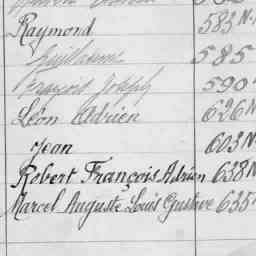 Raymond 583 N
Guillaume 585
François Joseph 590
Léon Adrien 626 N
Jean 603 N
Robert François Adrien 638 N
Marcel Auguste Louis Gustave 635